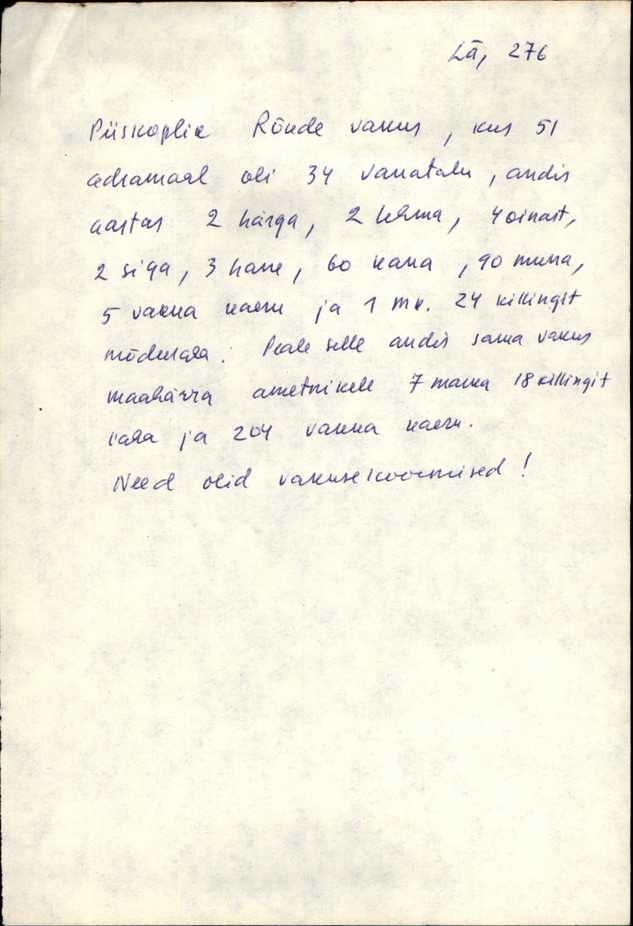 Lä, 276
Piiskoplik Rõude vakus, kus 51
adramaal oli 34 vanatalu, andis
aastas 2 härga, 2 lehma, 4 oinast,
2 siga, 3 hane, 60 kana, 90 muna,
5 vakka kaeru ja 1 mk. 24 killingit
mõduraha. Peale selle andis sama vakus
maahärra ametnikele 7 marka 18 killingit
raha ja 204 vakka kaeru.
Need olid vakusekoormised!